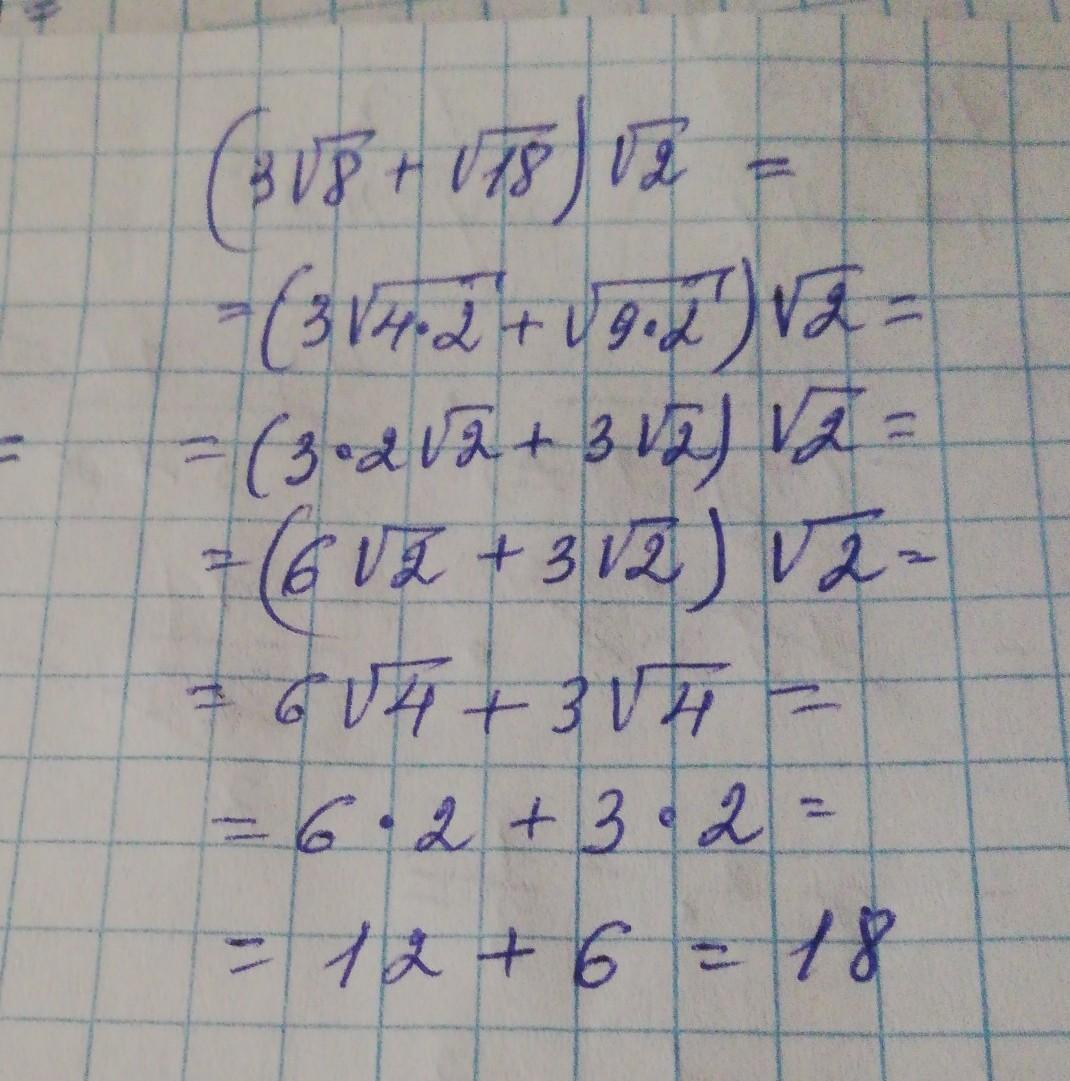 (3√8 + √18) √2 =
= (3√4·2 + √9·2) √2 =
= (3·2√2 + 3√2) √2 =
= (6√2 + 3√2) √2 =
= 6√4 + 3√4 =
= 6·2 + 3·2 =
= 12 + 6 = 18